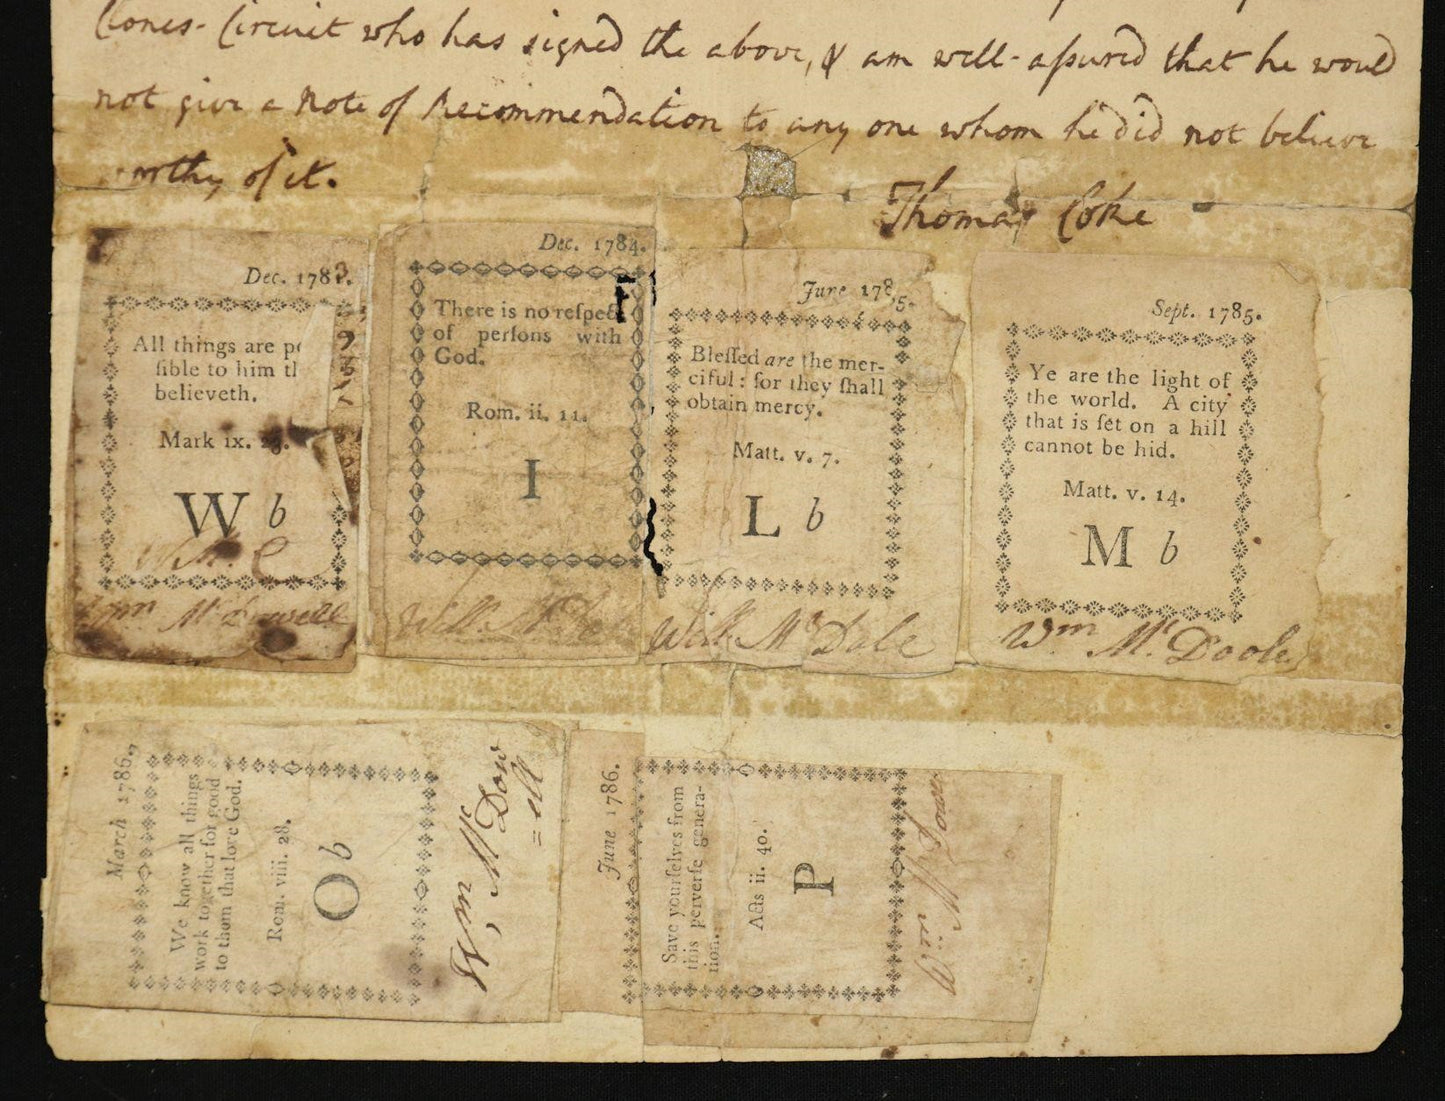 Clones-Circuit who has signed the above, & am well-assured that he would
not give a Note of Recommendation to any one whom he did not believe
of it.
Thomas Coke
Dec. 178
All things are
sible to him
believeth.
Mark ix.
W b
Wm Mc Dowell
Dec. 1784.
There is no respect
of persons with
God.
Rom. ii. 11.
I
Will
June 1785.
Blessed are the mer-
ciful: for they shall
obtain mercy.
Matt. v. 7.
L b
Will Mc Dole
Sept. 1785.
Ye are the light of
the world. A city
that is set on a hill
cannot be hid.
Matt. v. 14.
M b
Wm Mc Doole
March 1786.
We know all things
work together for good
to them that love God.
Rom. viii. 28.
O b
Wm, Mc Dow
=ell
June 1786.
Save yourselves from
this perverse genera-
tion.
Acts ii. 40.
P
Wm Mc